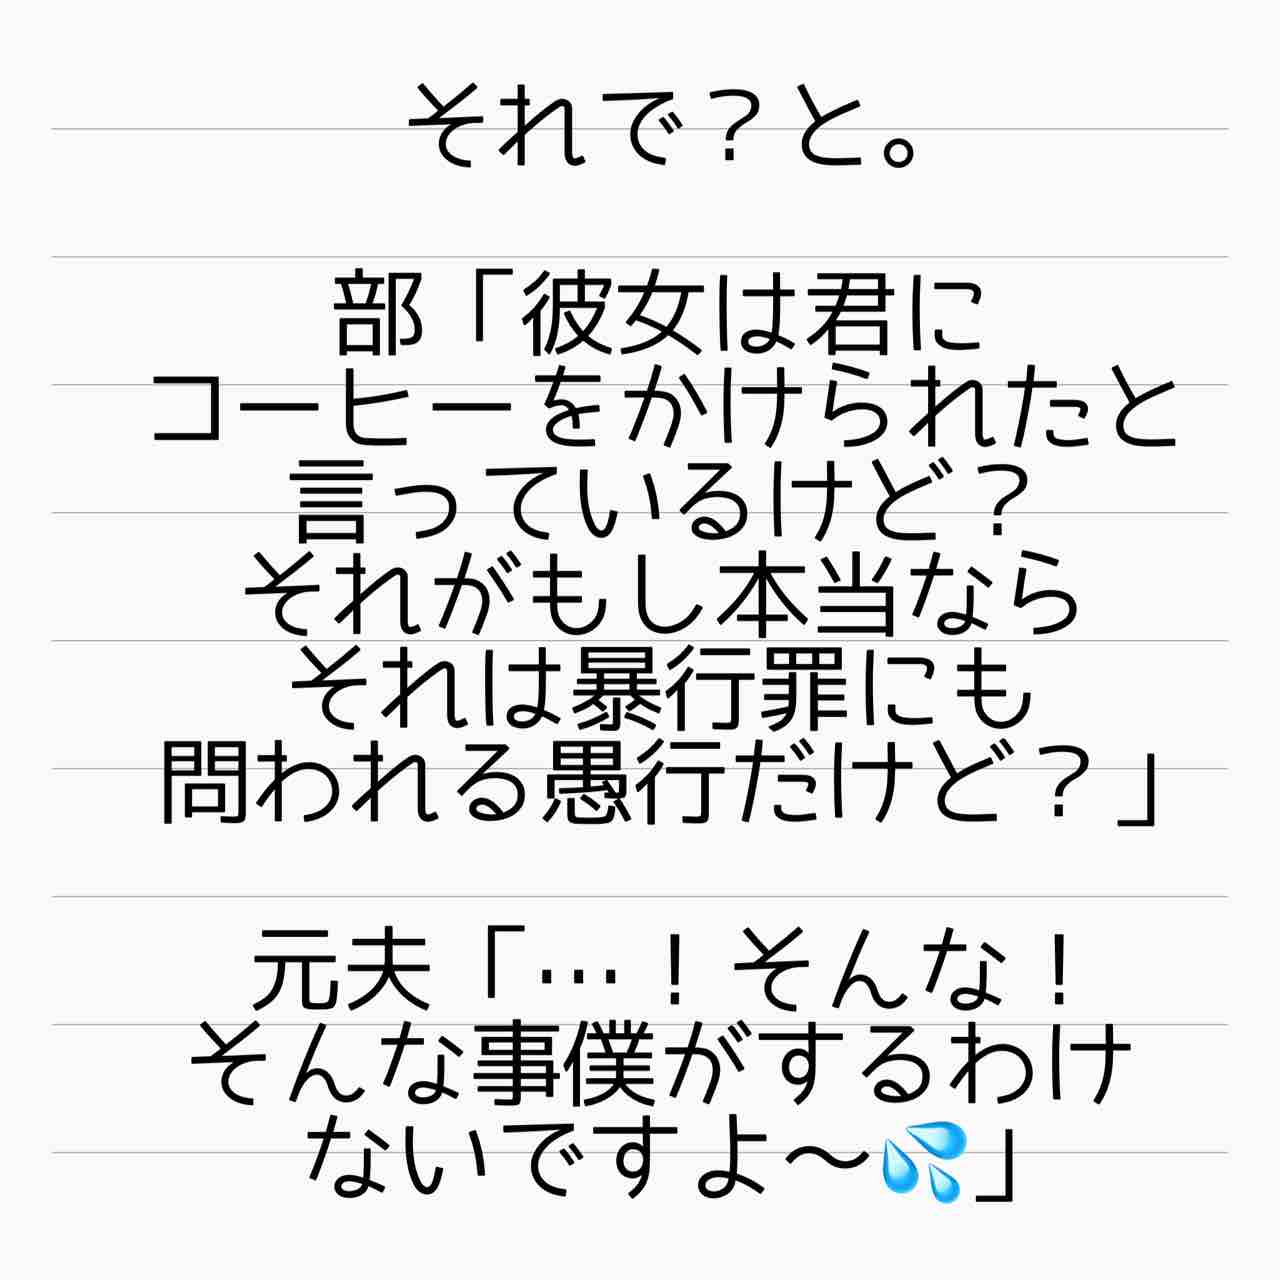 それで？と。
部「彼女は君に
コーヒーをかけられたと
言っているけど？
それがもし本当なら
それは暴行罪にも
問われる愚行だけど？」
元夫「…！そんな！
そんな事僕がするわけ
ないですよ〜💦」